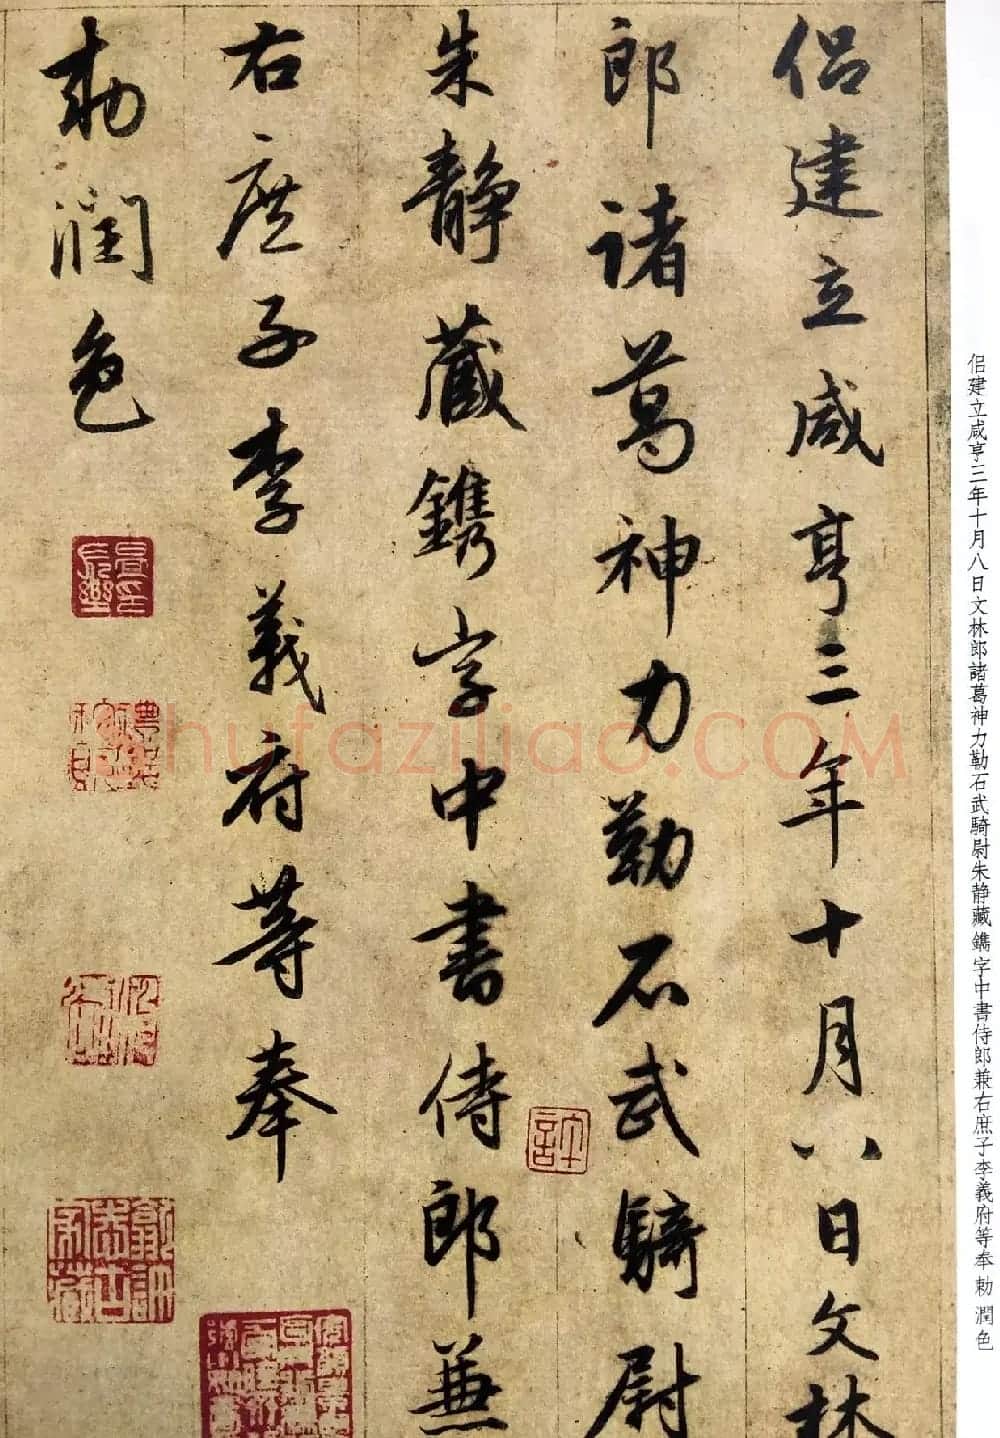 侣建立咸亨三年十月八日文林
郎諸葛神力勒石武騎尉
朱静藏鐫字中書侍郎兼
右庶子李義府等奉
勑潤色
侣建立咸亨三年十月八日文林郎諸葛神力勒石武騎尉朱静藏鐫字中書侍郎兼右庶子李義府等奉勑潤色
shufaziliao.COM